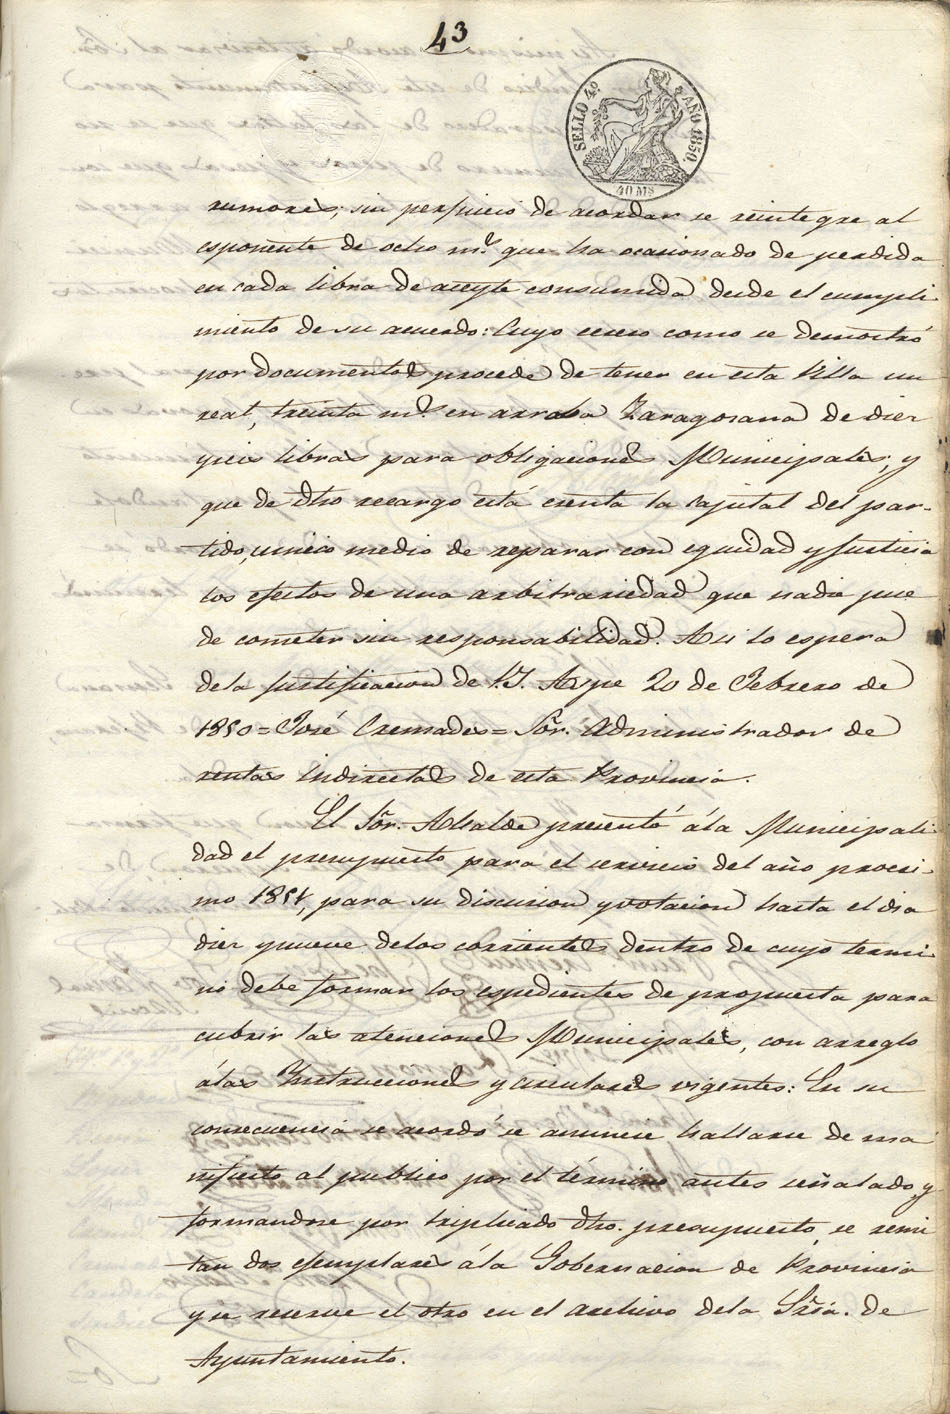 43
SELLO 4º AÑO 1850.
40 MS
rumores; sin perjuicio de acordar se reintegre al
esponente de ocho ms. que ha ocasionado de perdida
en cada libra de aceyte consumida desde el cumpli-
miento de su acuerdo: Cuyo eceso como se demostró
por documentos procede de tener en esta Villa un
real, treinta ms. en arroba Zaragosana de diez
yseis libras para obligaciones Municipales; y
que de dho recargo está esenta la capital del par-
tido, unico medio de reparar con equidad y justicia
los efectos de una arbitrariedad que nadie pue
de cometer sin responsabilidad. Asi lo espera
dela justificacion de V.S. Aspe 20 de Febrero de
1850 = José Cremades = Sõr. Administrador de
rentas indirectas de esta Provincia.
El Sõr. Alcalde presentó ála Municipali-
dad el presupuesto para el servicio del año procsi-
mo 1851, para su discusion y votacion hasta el dia
diez ynueve delos corrientes dentro de cuyo termi-
no debe formar los espedientes de propuesta para
cubrir las atenciones Municipales, con arreglo
álas Instrucciones y circulares vigentes: En su
consecuencia se acordó se anuncie hallarse de ma
nifiesto al publico por el término antes señalado y
formandose por triplicado dho. presupuesto, se remi
tan dos ejemplares ála Gobernacion de Provincia
y se reserve el otro en el archivo dela Sría. de
Ayuntamiento.